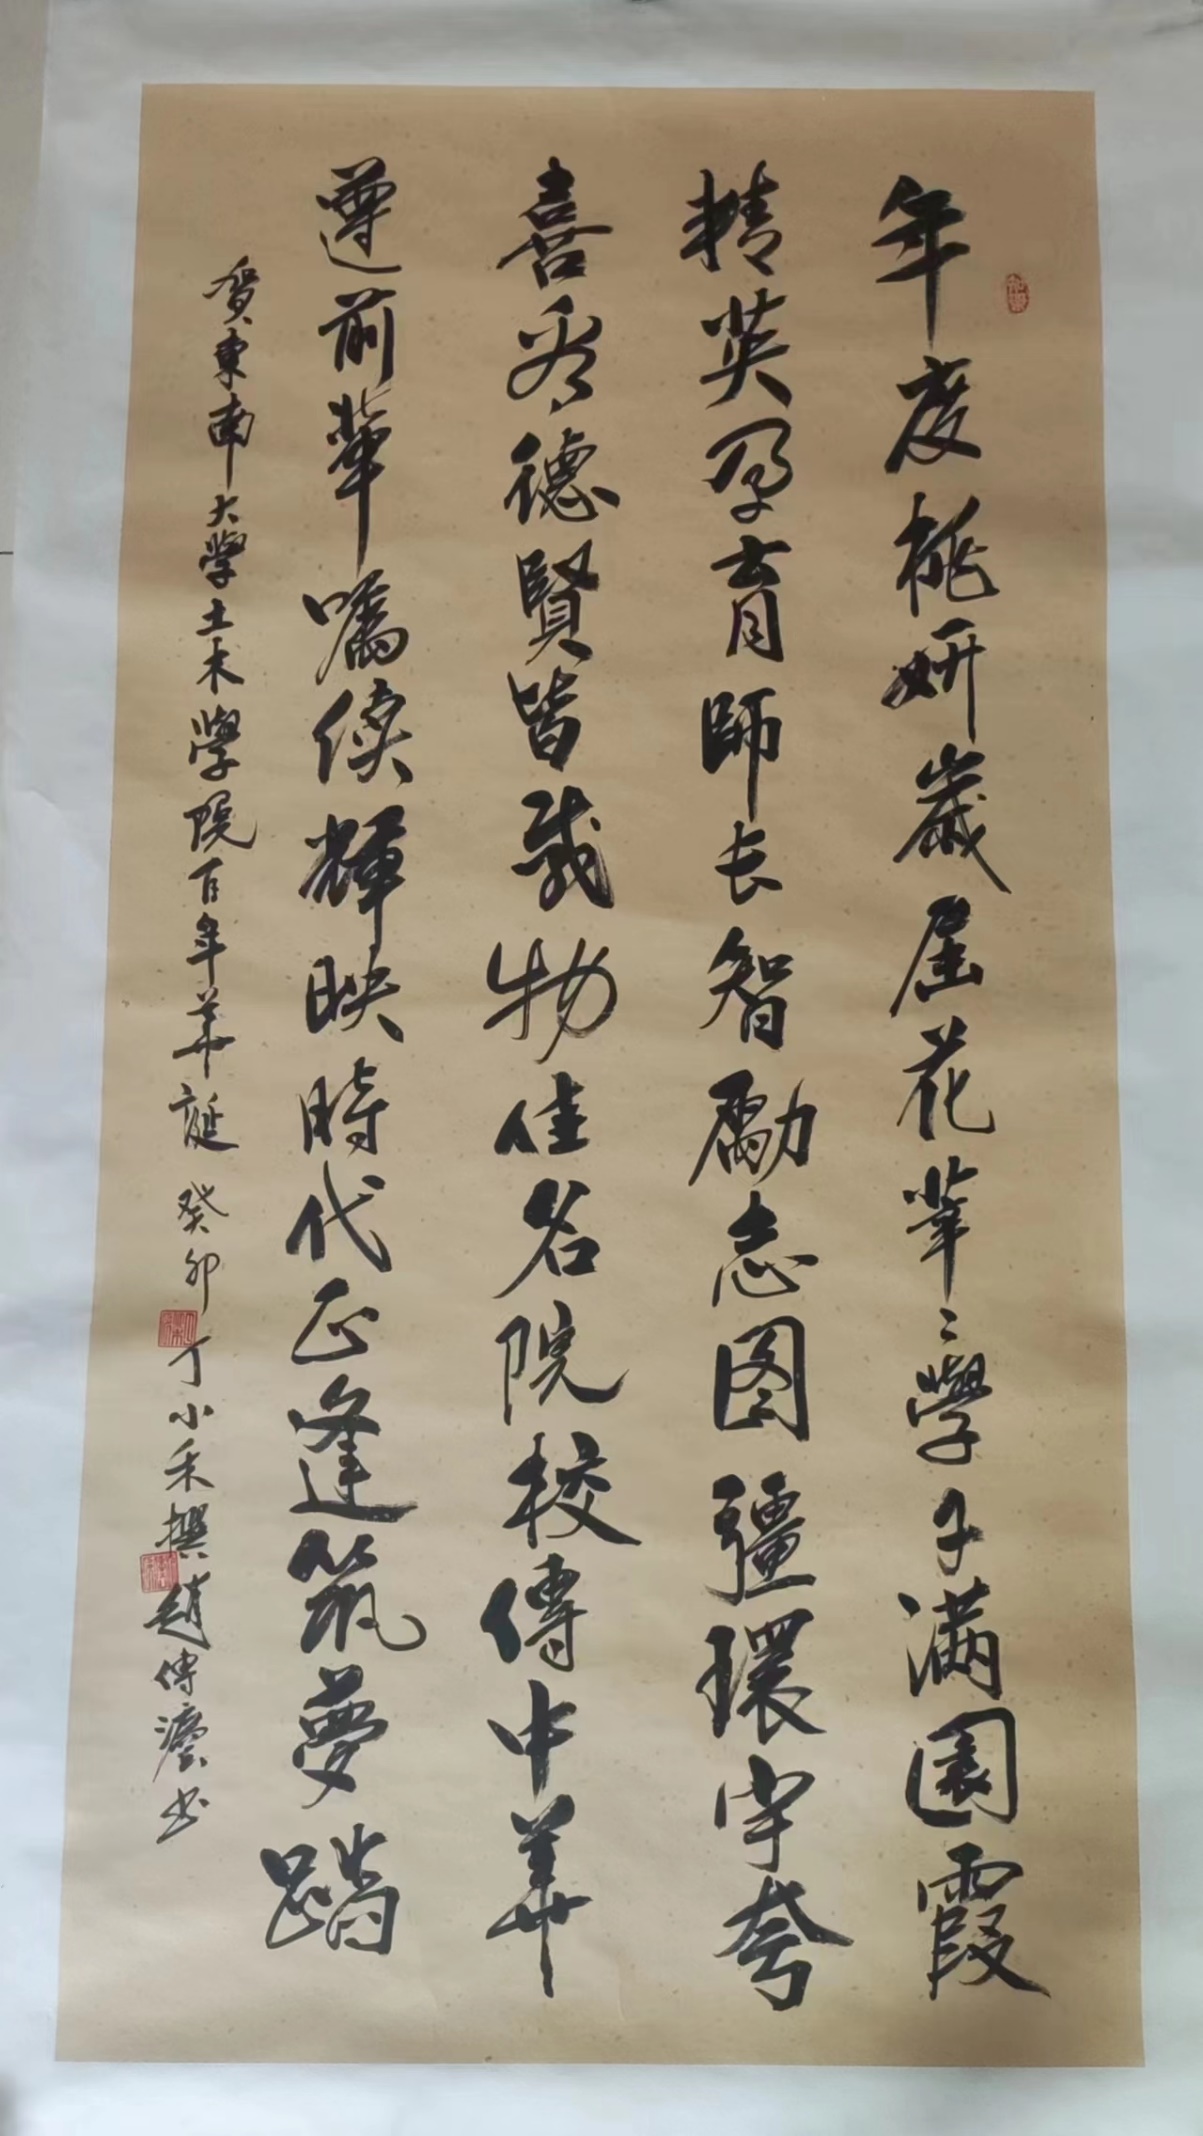 年度桃妍歲届花莘〻學子滿園霞
精英孕育師長智勵志图疆環宇夸
喜看德賢皆裁物佳名院校傳中華
遵前輩囑續輝映時代正逢筑夢踏
賀東南大學土木學院百年華誕 癸卯 丁小禾撰 趙傳瀛书